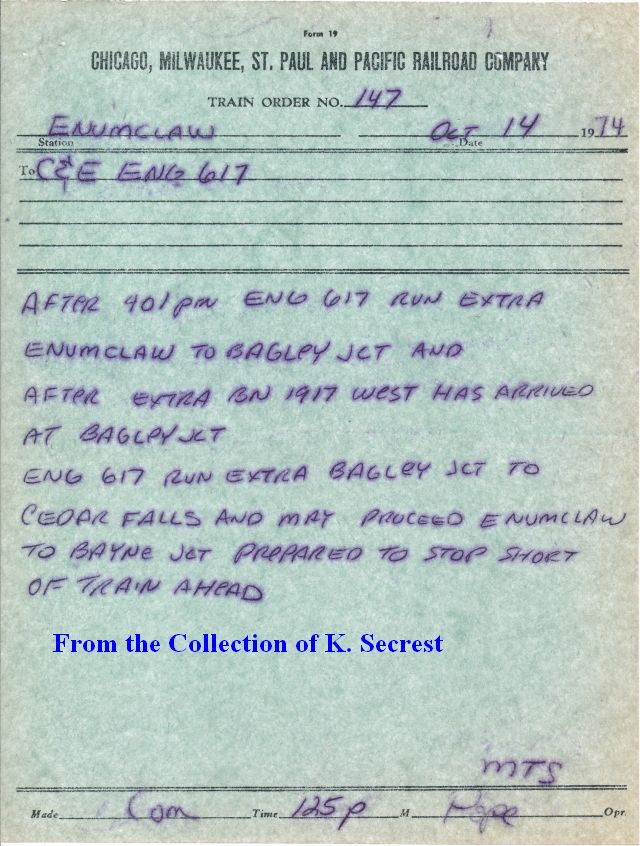 Form 19
CHICAGO, MILWAUKEE, ST. PAUL AND PACIFIC RAILROAD COMPANY
TRAIN ORDER NO. 147
ENUMCLAW Oct 14 1974
Station Date
To C&E ENG 617
AFTER 401 pm ENG 617 RUN EXTRA
ENUMCLAW TO BAGLEY JCT AND
AFTER EXTRA BN 1917 WEST HAS ARRIVED
AT BAGLEY JCT
ENG 617 RUN EXTRA BAGLEY JCT TO
CEDAR FALLS AND MAY PROCEED ENUMCLAW
TO BAYNE JCT PREPARED TO STOP SHORT
OF TRAIN AHEAD
From the Collection of K. Secrest
MTS
Made Com Time 125p M Pope Opr.